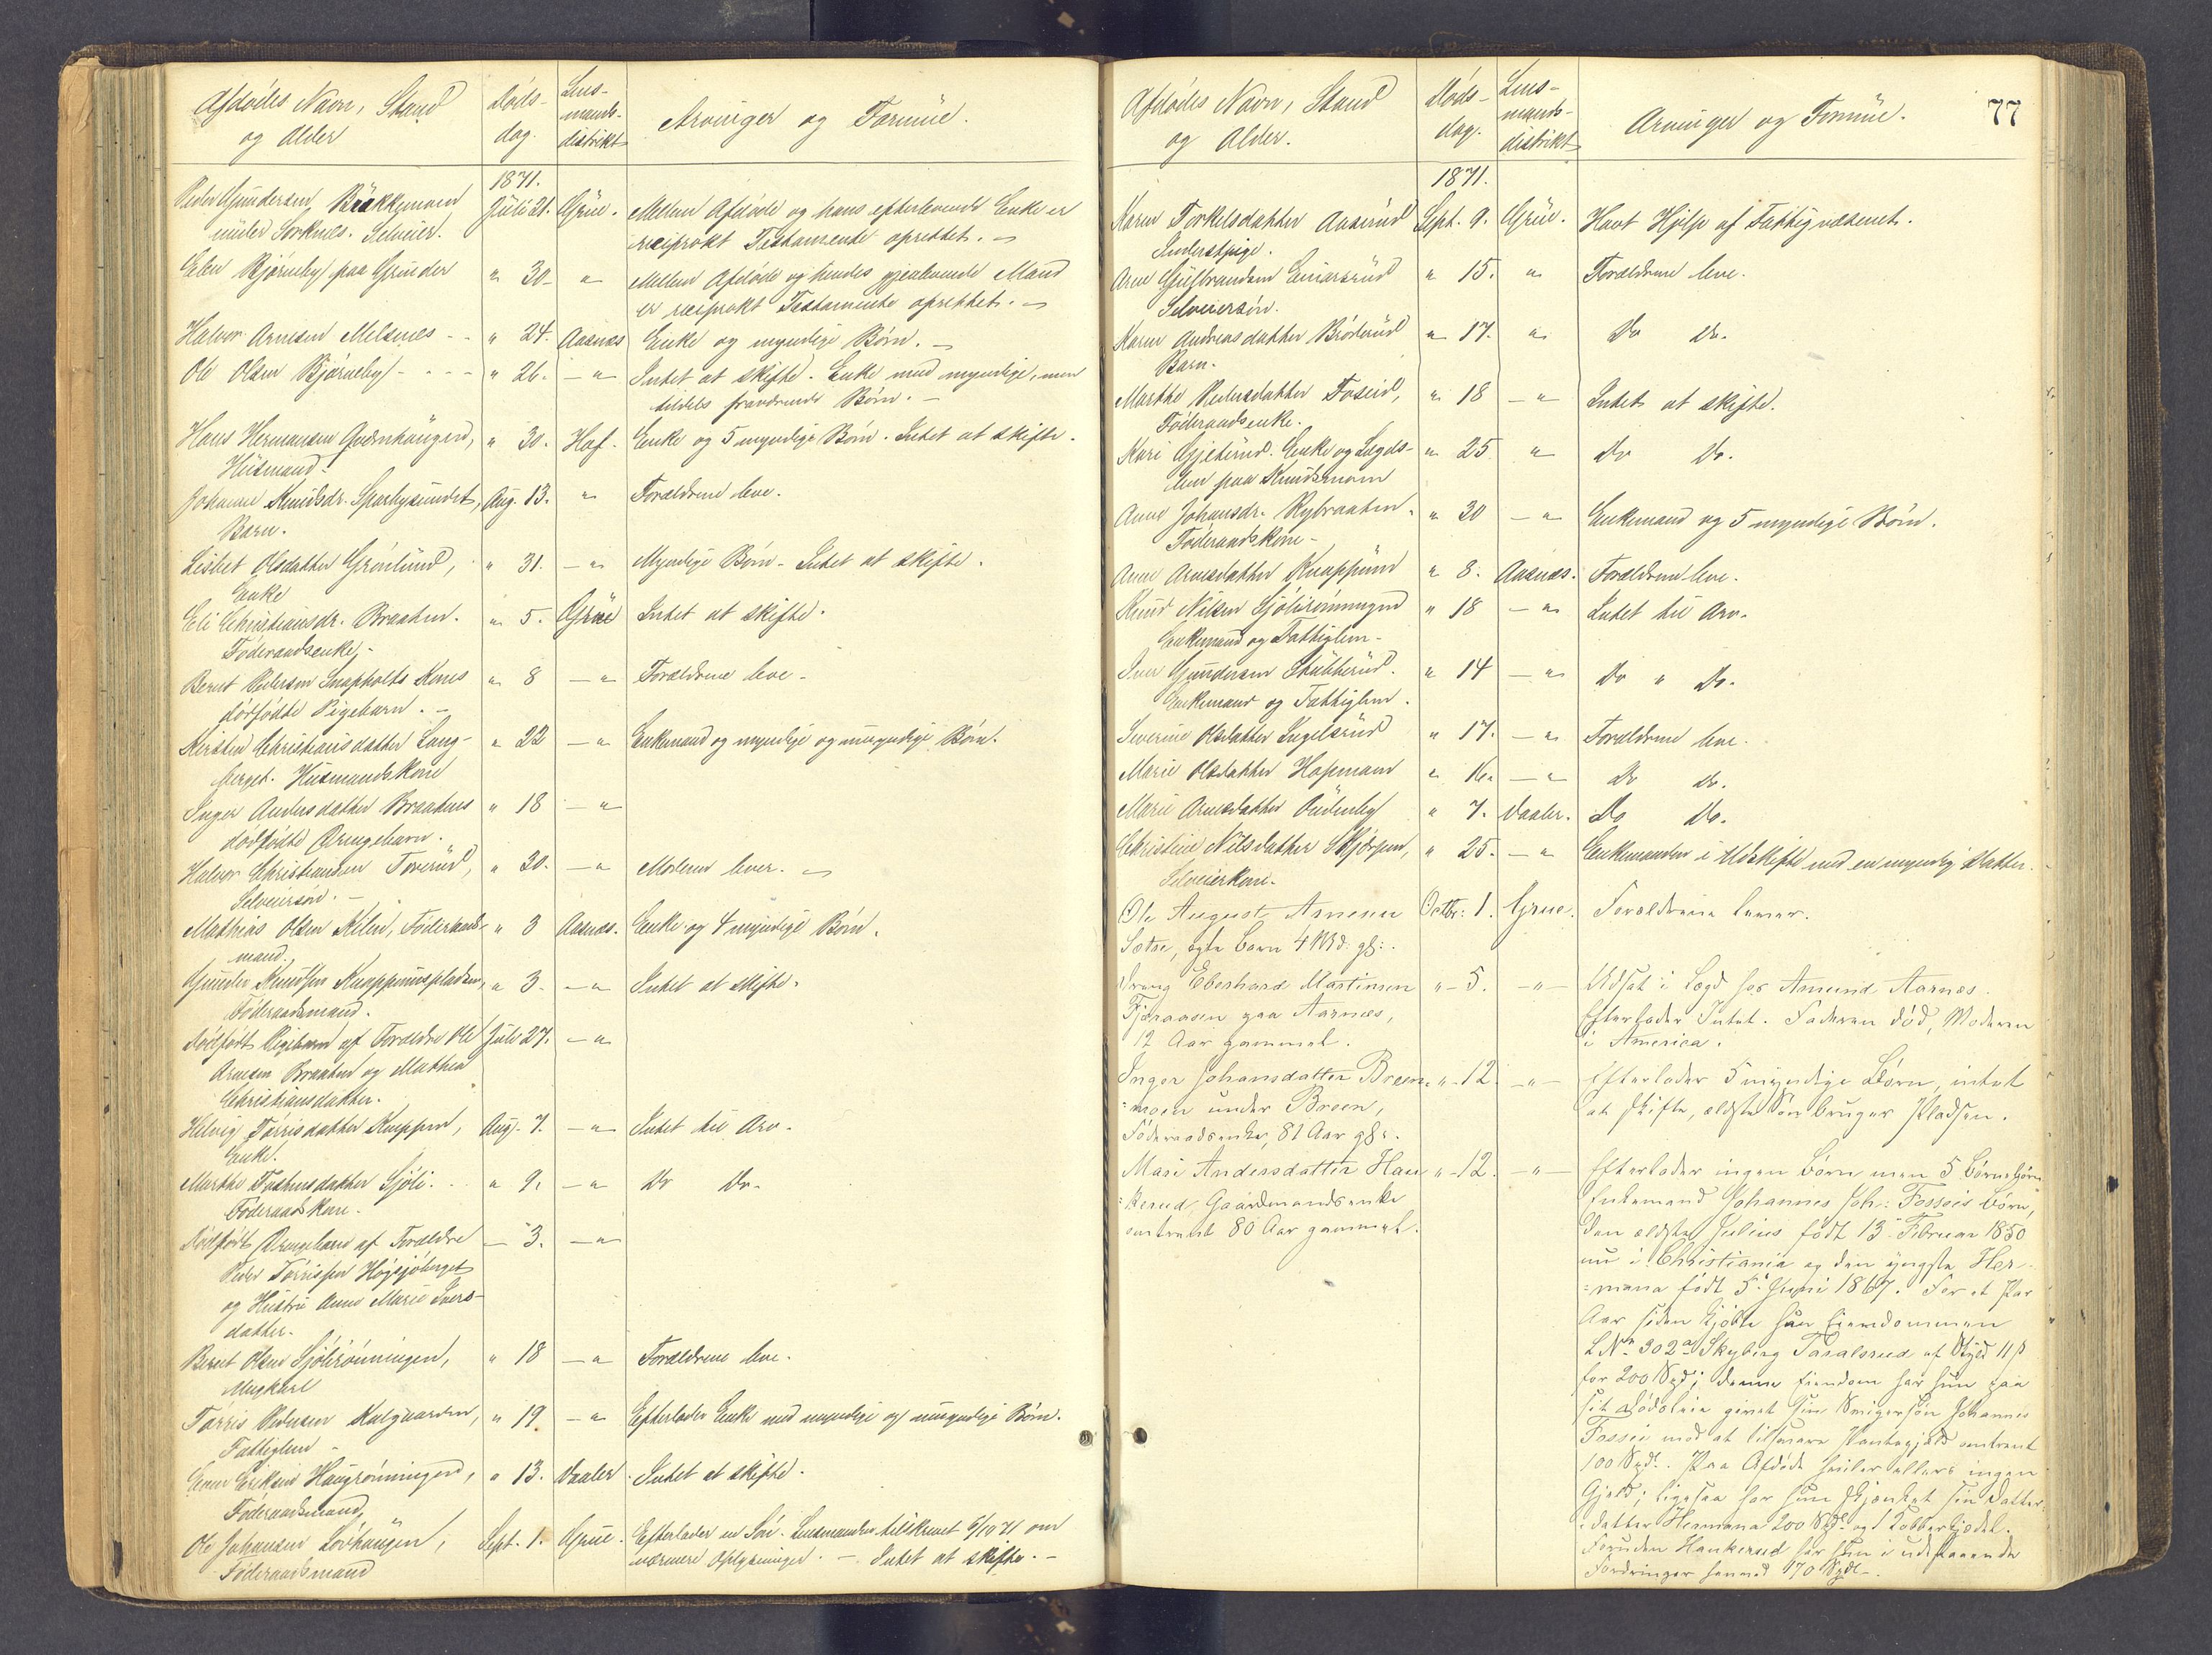 Afdødes Navn, Stand
og Alder
Døds-
dag.
Lens-
mands-
distrikt
Arvinger og Formue.
1871.
Peder Gundersen Bækkemoen
under Sorknes. Selveier.
Juli 21. Grue. Mellem Afdøde og hans efterlevende Enke er
reciprokt Testamente oprettet. –
Eline Bjørneby paa Grinder
" 30 – " Mellem Afdøde og hendes gjenlevende Mand
er reciprokt Testamente oprettet. –
Halvor Arnesen Melsnes - - " 24. Aasnes Enke og myndige Børn. –
Ole Olsen Bjørneby - - - - " 26. – " Intet at skifte. Enke med myndige, men
tildels fraværende Børn. –
Hans Hermansen Qvernhaugen,
Husmand.
" 30. Hof. Enke og 5 myndige Børn. Intet at skifte.
Johanne Knudsdr. Sparbysundet,
Barn.
Aug. 13. " Forældrene leve.
Lisbet Olsdatter Grønlund,
Enke
" 31. – " Myndige Børn – Intet at skifte.
Eli Christiansdr. Braaten.
Føderaadsenke. –
" 5. Grue Intet at skifte.
Bernt Pedersen Snapholts Kones
dødfødte Pigebarn. –
" 8 – " Forældrene leve –
Kirsten Christiansdatter Lang-
berget. Husmandskone
" 22 – " Enkemand og myndige og umyndige Børn.
Inger Andersdatter Braatens
dødfødte Drengebarn.
" 18 – "
Halvor Christiansen Toverud,
Selveiersøn. –
" 30. – " Moderen lever. –
Mathias Olsen Kilen, Føderaads-
mand.
" 3 Aasnes. Enke og 4 myndige Børn.
Gunder Knudsen Knappmospladsen,
Føderaadsmand.
" 3. – " Intet at skifte.
Dødfødt Pigebarn af Forældre Ole
Arnesen Braaten og Mathea
Christiansdatter.
Juli 27. – "
Helvig Tørrisdatter Knappen,
Enke.
Aug. 7. – " Intet til Arv.
Marthe Fostensdatter Sjøli. - -
Føderaadskone.
" 9. – " Do Do.
Dødfødt Drengebarn af Forældre
Peder Tørrissen Høgsjøberget
og Hustru Anne Marie Ivers-
datter.
– 3. – "
Bernt Olsen Sjølirønningen,
Ungkarl
" 18 – " Forældrene leve.
Tørris Pedersen Kalgaarden,
Fattiglem –
" 19 – " Efterlader Enke med myndige og umyndige Børn.
Einer Eriksen Haugrønningen,
Føderaadsmand,
" 13. Vaaler. Intet at skifte.
Ole Johansen Løvhaugen,
Føderaadsmand
Sept. 1. Grue. Efterlader en Søn. Lensmanden tilskrevet 6/10 71 om
nærmere Oplysninger. – Intet at skifte. –
77
Afdødes Navn, Stand
og Alder.
Døds-
dag.
Lens-
mands-
distrikt
Arvinger og Formue.
1871.
Karen Torkelsdatter Aaserud
Inderstpige.
Sept. 9. Grue. Havt Hjelp af Fattigvæsenet.
Arne Gulbrandsen Einarsrud
Selveiersøn.
" 15. " Forældrene leve.
Karen Andreasdatter Brøderud
Barn.
" 17. " Do Do.
Marthe Pedersdatter Foseid,
Føderaadsenke.
" 18 – " Intet at skifte.
Kari Gjeterud. Enke og Lægds-
lem paa Knudsmoen
" 25 " Do Do.
Anne Johansdr. Rybraaten.
Føderaadskone –
" 30 – " Enkemand og 5 myndige Børn.
Anne Arnesdatter Knappmo
" 8. Aasnes. Forældrene leve.
Knud Nilsen Sjølirønningen
Enkemand og Fattiglem –
" 18 – " Intet til Arv.
Iver Gundersen Stubberud.
Enkemand og Fattiglem.
" 14 – " Do " Do.
Severine Olsdatter Ingelsrud " 17. – " Forældrene leve.
Marie Olsdatter Hofmoen " 16. – " Do Do.
Marie Arnesdatter Oudenby " 7. Vaaler. Do Do.
Christine Nilsdatter Skjørpen,
Selveierkone.
" 25. – " Enkemanden i Uskifte med en myndig Datter.
Ole August Arnesen
Sætre, ægte Barn 4 Md. gl:.
Octbr: 1. Grue. Forældrene lever.
Dreng Eberhard Martinsen
Fjeraasen paa Aarnæs,
12 Aar gammel.
" – 5. – " – Udsat i Lægd hos Amund Aarnæs.
Efterlader Intet. Faderen død, Moderen
i America.
Inger Johansdatter Breen-
=moen under Breen,
Føderaadsenke, 81 Aar gl:.
" – 12. – " – Efterlader 5 myndige Børn, intet
at skifte, ældste Søn bruger Pladsen.
Mari Andersdatter Hau
=kerud, Gaardmandsenke
omtrent 80 Aar gammel.
" – 12. – " – Efterlader ingen Børn men 5 Børnebørn
Enkemand Johannes Joh: Fosseis Børn,
den ældste Julius født 13 Februar 1850
nu i Christiania og den yngste Her-
=mana født 5 Juni 1867. For et Par
Aar siden kjøbte hun Eiendommen
L No 302 a Skyberg Taralsrud af Skyld 11 ß
for 200 Spd; denne Eiendom har hun paa
sit Dødsleie givet sin Svigersøn Johannes
Fossei mod at tilsvare Pantegjæld omtrent
100 Spd. Paa Afdøde hviler ellers ingen
Gjæld; ligesaa har hun skjænket sin Datter-
=datter Hermana 200 Spd og 1 Kobberkjedel.
Foruden Haukerud har hun i udestaaende
Fordringer henved 170 Spd –